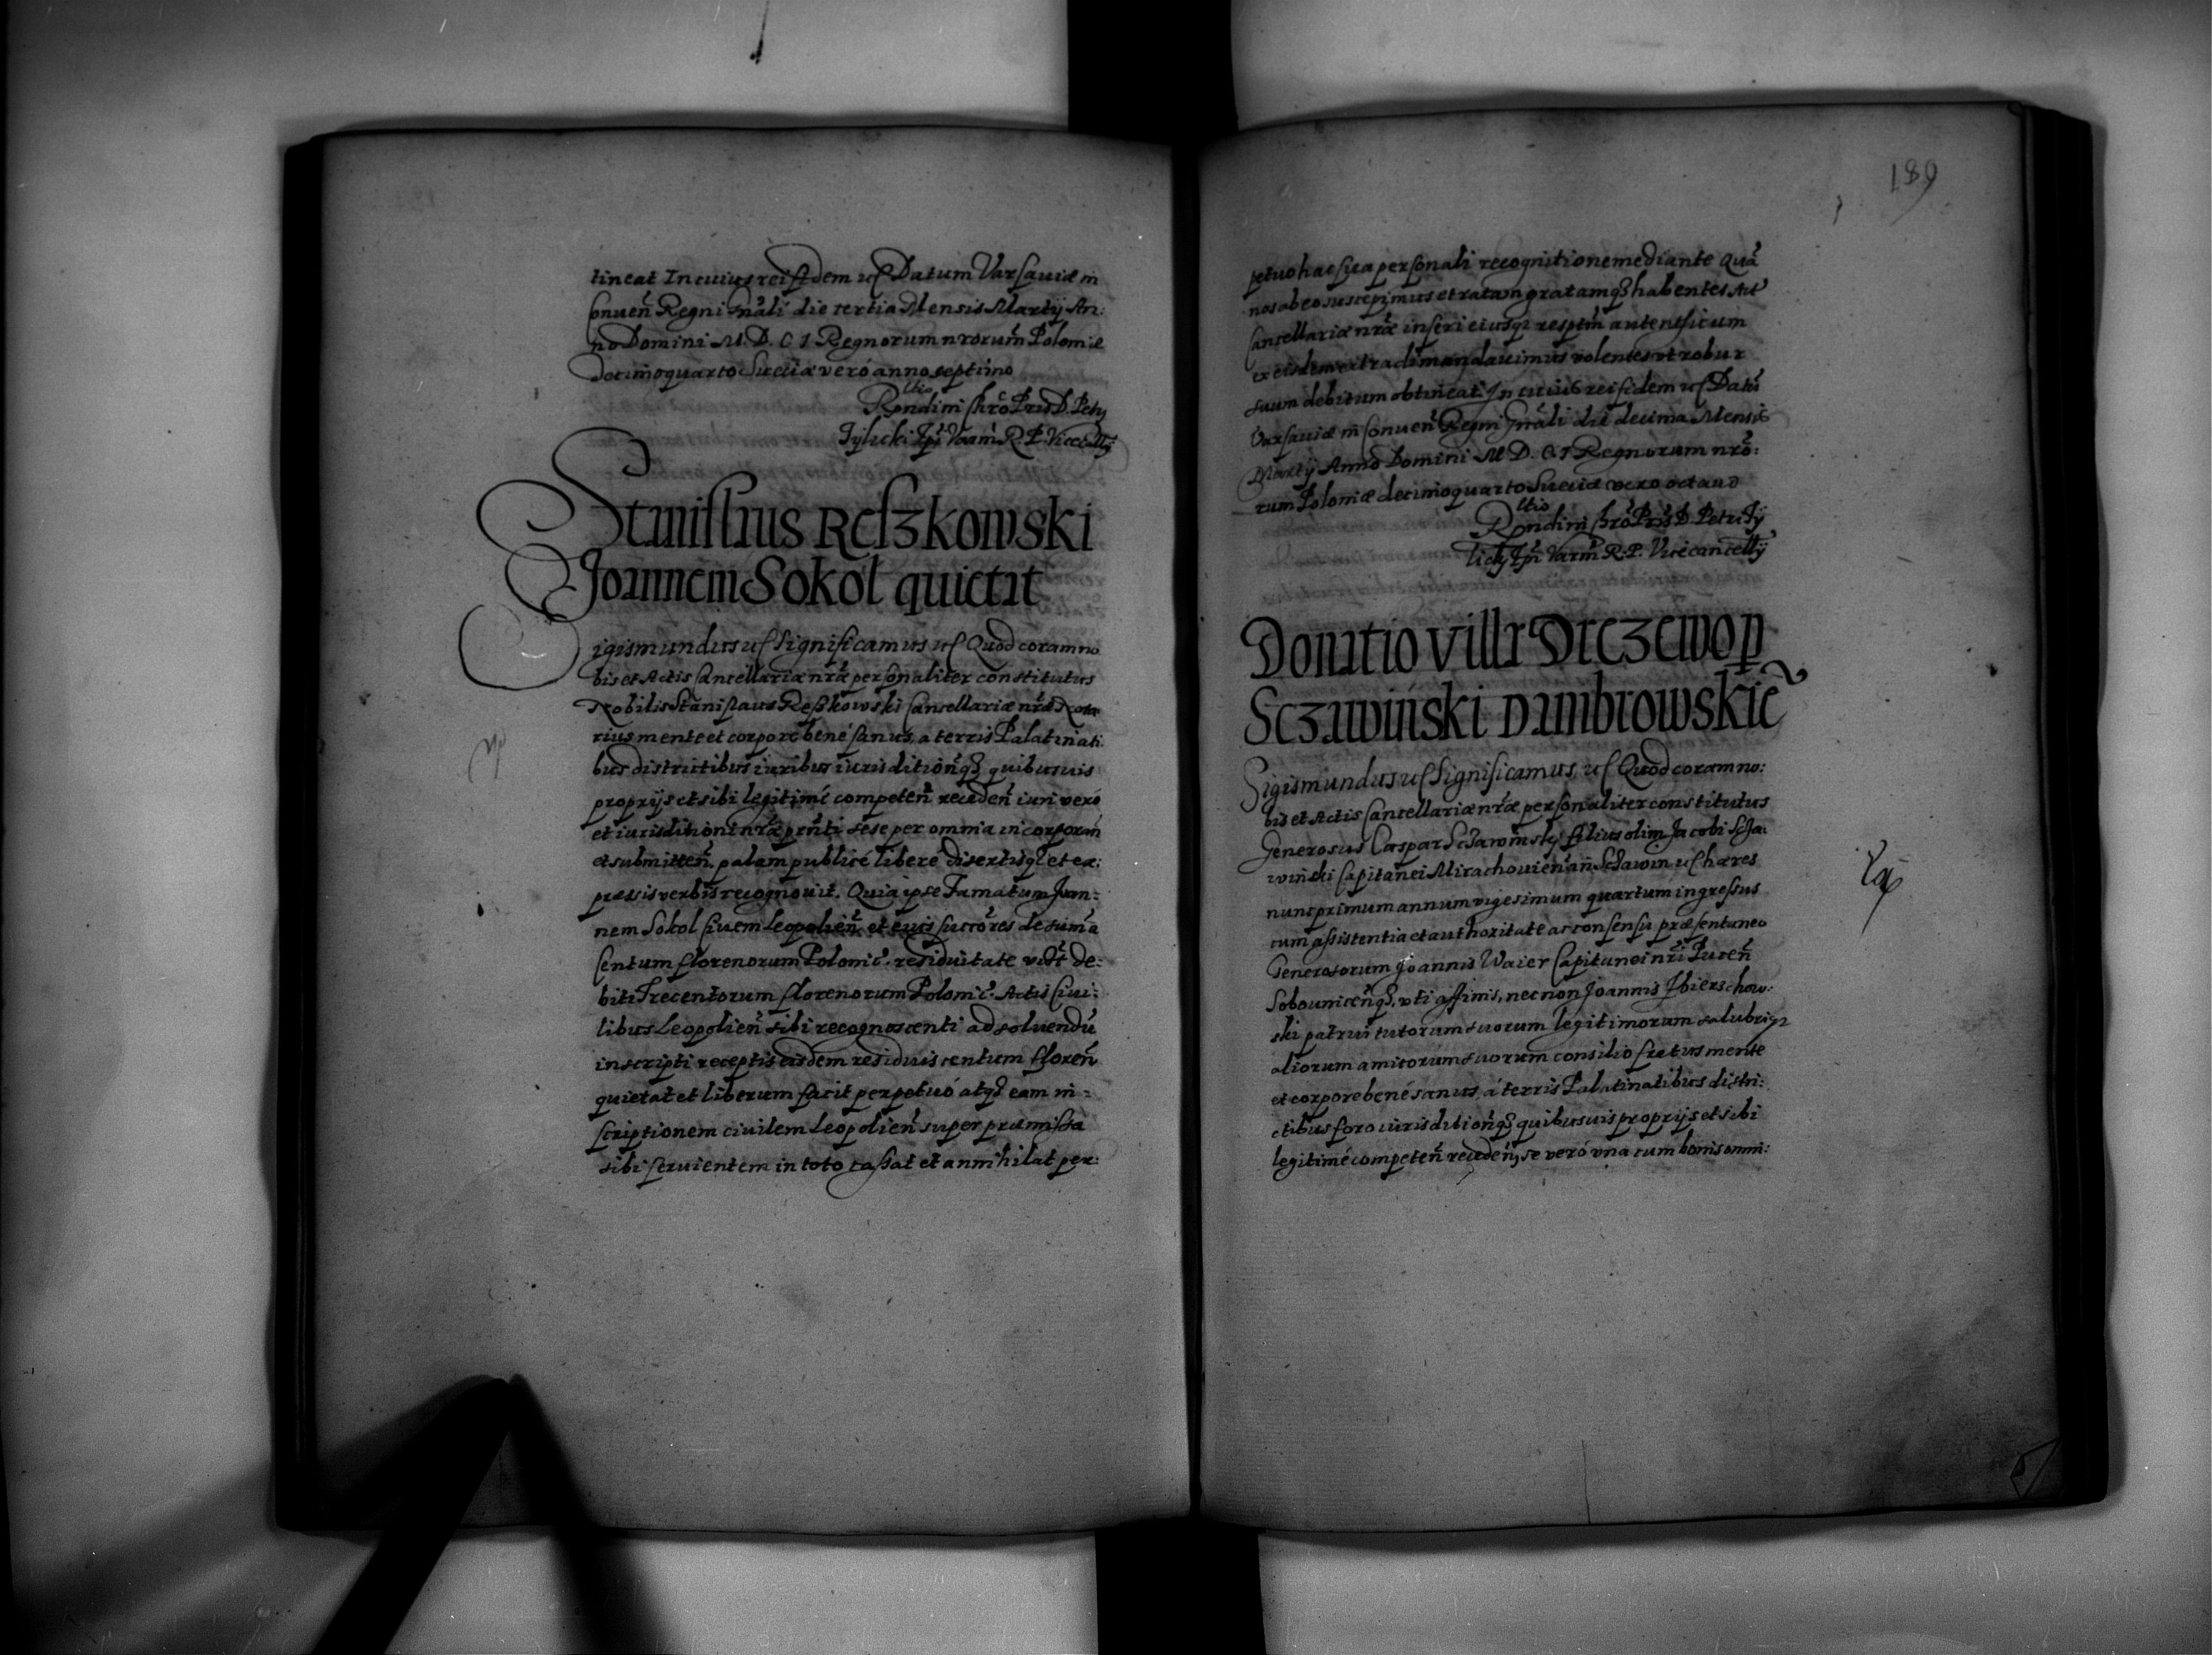 tineat In cuius rei fidem uc̃ Datum Varsauiæ in
Conueñ Regni Gñali die tertia Mensis Martÿ An:
no Domini M.D.C I Regnorum nrorum̃ Poloniæ
Decimoquarto Sueciæ veró anno septimo
Rndiɱi Chrõ Pris D. Petri
Tylicki Epi Varm̃ R.P. Vicecallÿ
Stanislaus Reszkowski
Joannem Sokol quietat
Sigismundus uc̃ Significamus uc̃ Quod coram no
bis et Actis Cancellariæ nr̃æ personaliter constitutus
Nobilis Stanislaus Reszkowski Cancellariæ nr̃æ Nota
rius mente et corpore bené sanus, a terris Palatinati:
bus districtibus iuribus iurisdition̄q3 quibusuis
proprijs et sibi legitimé competeñ recedeñ iuri veró
et iurisditioni nr̃æ prñti sese per omnia incorporañ
et submitteñ, palam publicé liberé disertisq3 et ex:
præssis verbis recognouit. Quia ipse Famatum Joan:
nem Sokol Ciuem Leopolieñ et eius succõres de suma
Centum florenorum Polonic̃. residuitate vidt̃ de:
biti Trecentorum florenorum Polonic̃. Actis Ciui:
libus Leopolieñ sibi recognoscenti ad soluendũ
inscripti receptis eisdem residuis centum floreñ
quietat et liberum facit perpetuó atq3 eam in:
scriptionem ciuilem Leopolieñ super præmissa
sibi seruientem in toto cassat et annihilat per:
189
petuo hac sua personali recognitione mediante Quã
nos ab eo suscepimus et ratam gratamq3 habentes Act
Cancellariæ nr̃æ inseri eiusq3 resptm̃ autenticum
ex eisdem extradi mandauimus volentes vt robur
suum debitum obtineat. In cuius rei fidem uc̃ Datũ
Varsauiæ in Conueñ Regni Gñali die decima Mensis
Martÿ Anno Domini M D. C I Regnorum nrõ:
rum Poloniæ decimoquarto Sueciæ vero octauo
Rndiɱi Chrõ Pris D. Petri Ty
licky Epi Varm̃ R.P. Vicecancellÿ
Donatio villæ Drczewo p
Sczawiński Dambrowskie͠
Sigismundus uc̃ Significamus uc̃ Quod coram no:
bis et Actis Cancellariæ nr̃æ personaliter constitutus
Generosus Caspar Sczawinsky filius olim Jacobi Scza:
winski Capitanei Mirachouieñ in Sczawin uc̃ hæres
nunc primum annum vigesimum quartum ingressus
cum assistentia et authoritate ac consensu præsentaneo
Generosorum Joannis Waier Capitanei nr̃i Puceñ
Soboviceñq3, vti affinis, nec non Joannis Zbierschow:
ski patrui tutorum suorum legitimorum salubriq3
aliorum amicorum suorum consilio fretus mente
et corpore bené sanus, á terris Palatinatibus distri:
ctibus foro iurisditioñq3 quibusuis proprijs et sibi
legitimé competeñ recedeñ, se veró vna cum bonis omni: